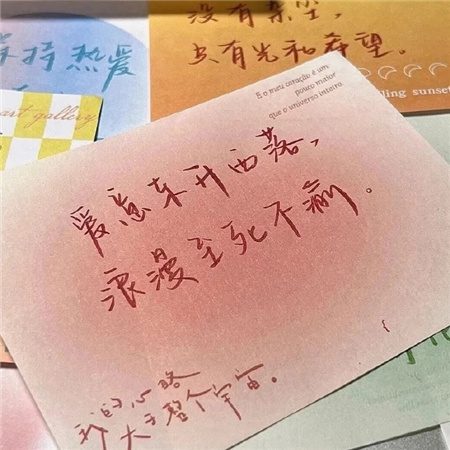 没有杂尘，
只有光和希望。
持热爱
art gallery
ling sunset
E o meu coração é um
pouco maior
que o universo inteiro.
爱意东升西落，
浪漫至死不渝。
我的心略
大于整个宇宙。